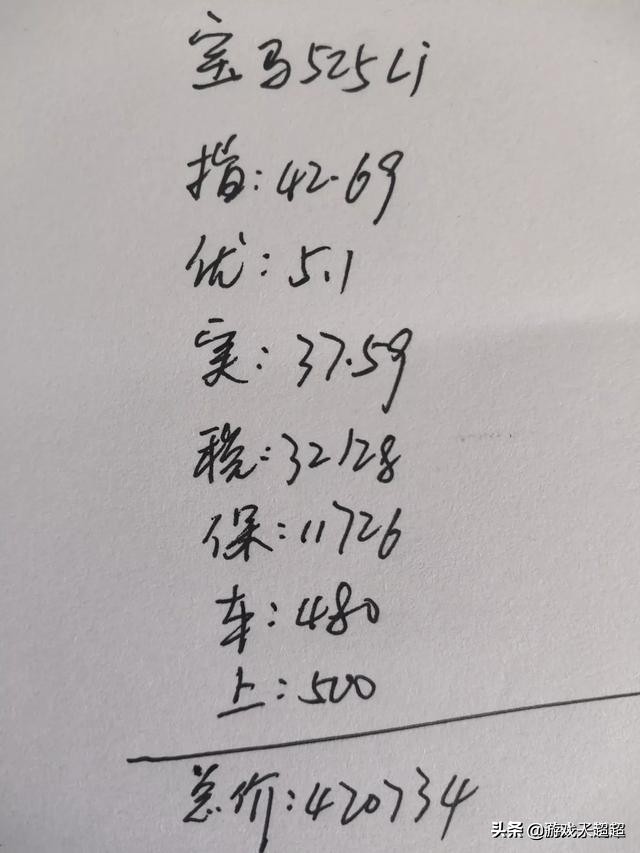 宝马525Li
指:42.69
优:5.1
实:37.59
税:32128
保:11726
车:480
上:500
总价:420734
头条 @游戏大超超